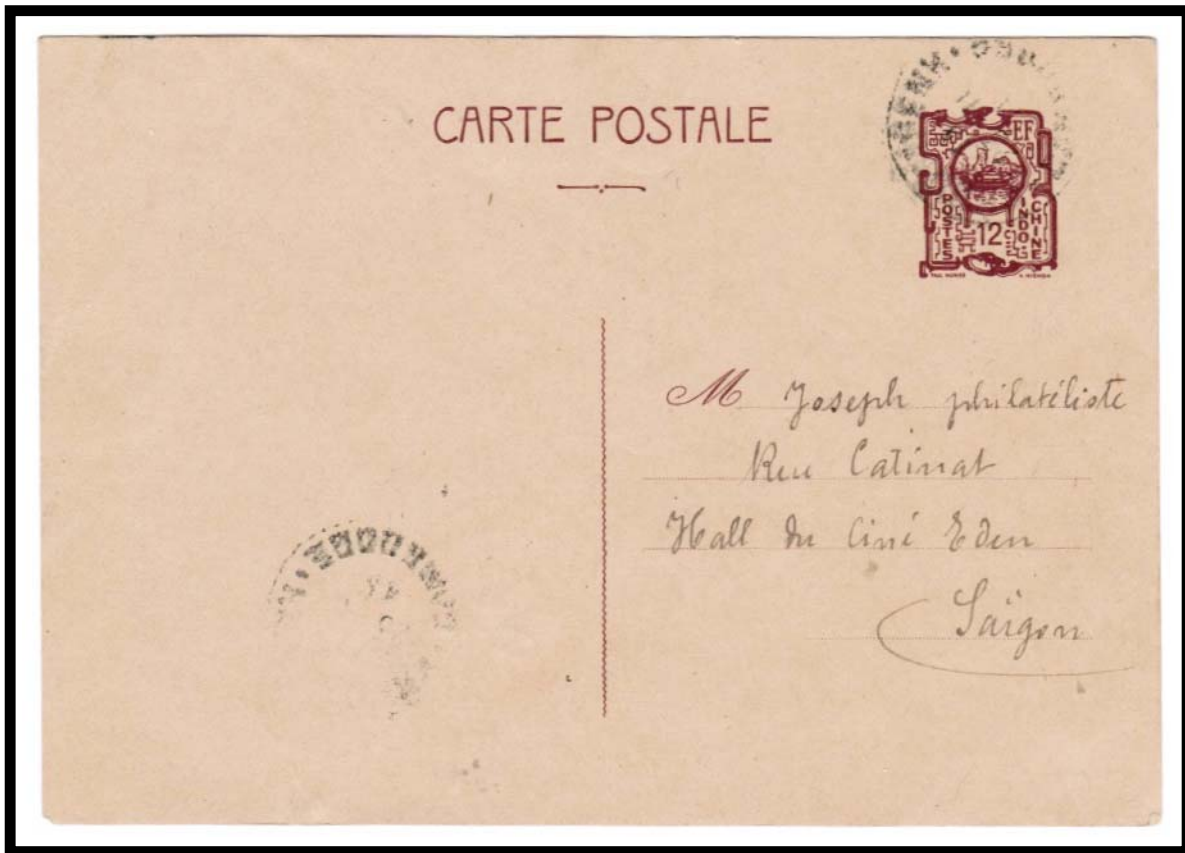 CARTE POSTALE
EF
POSTES
INDO-
CHINE
12 c
M Joseph philatéliste
Rue Catinat
Hall du Ciné Eden
Saïgon